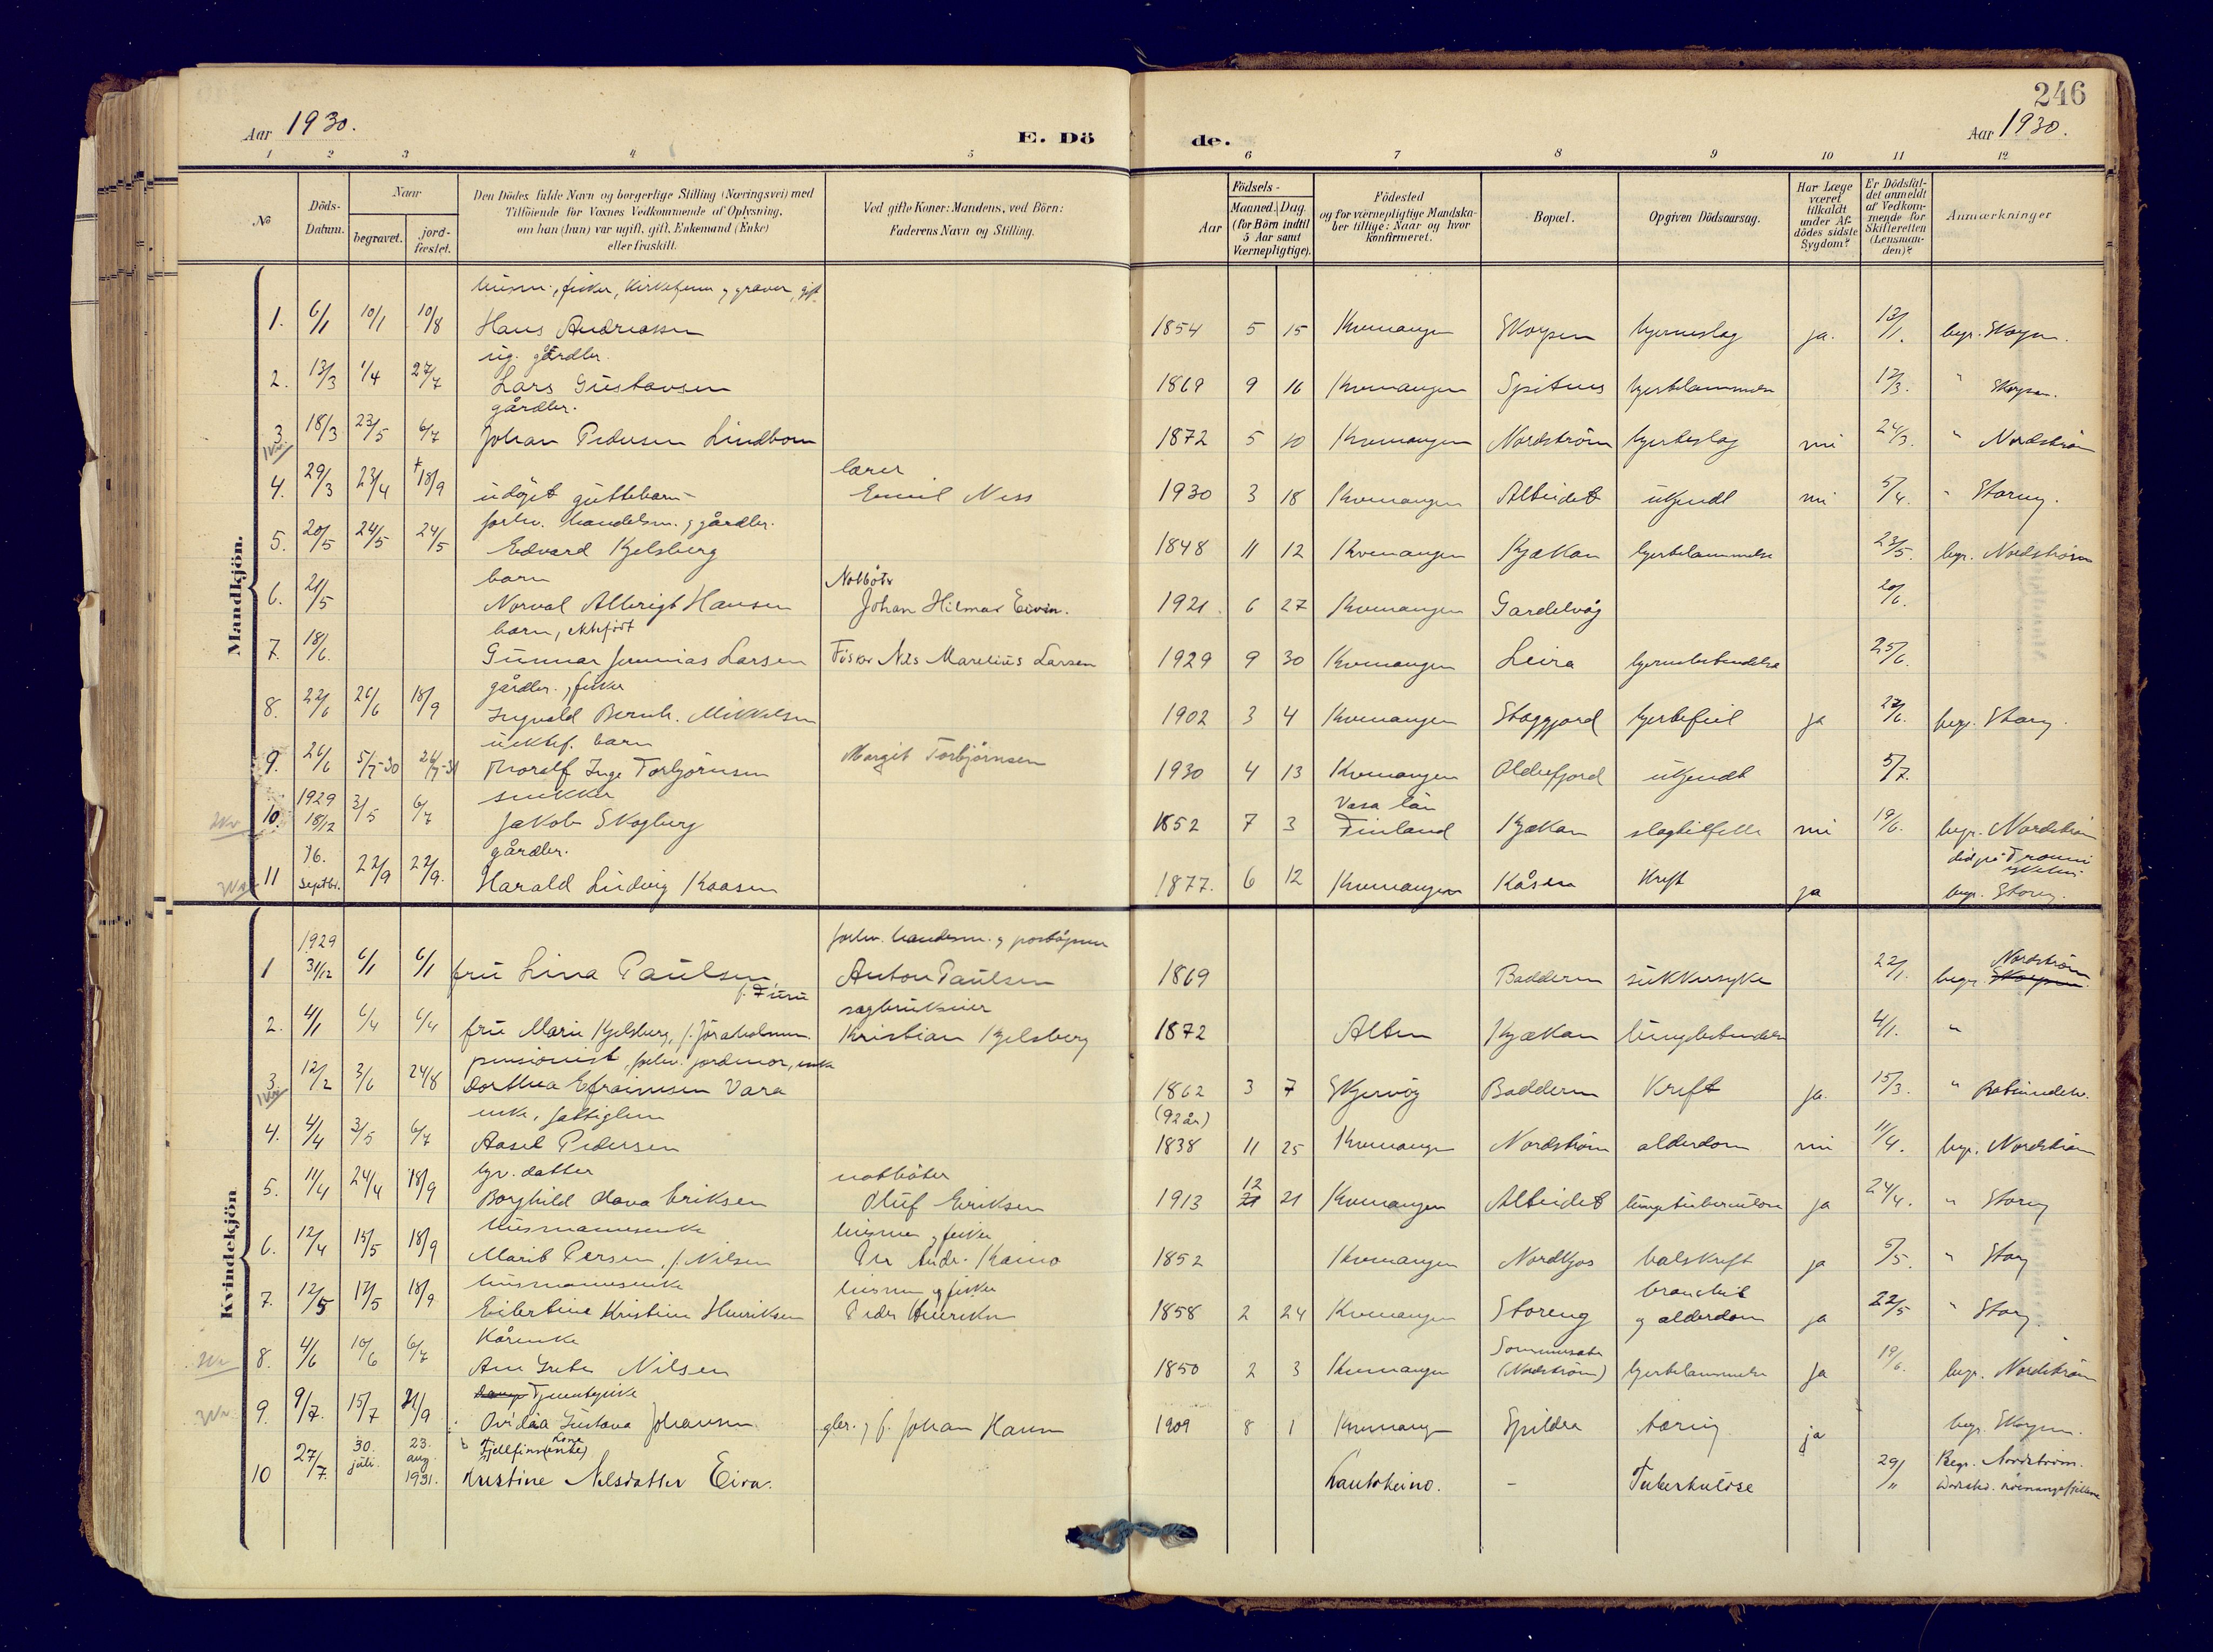 246
Aar 1930.
E. Dö
de.
Aar 1930.
1 2 3 4 5 6 7 8 9 10 11 12
No
Döds-Datum.
Naar
begravet.
jord-fæstet.
Den Dödes fulde Navn og borgerlige Stilling (Næringsvei) med
Tilföiende for Voxnes Vedkommende af Oplysning,
om han (hun) var ugift, gift, Enkemand (Enke)
eller fraskilt.
Ved gifte Koner: Mandens, ved Börn:
Faderens Navn og Stilling.
Födsels-
Aar
Maaned. Dag
(for Börn indtil
5 Aar samt
Værnepligtige).
Födested
og for værnepligtige Mandska-
ber tillige: Naar og hvor
konfirmeret.
Bopæl.
Opgiven Dödsaarsag.
Har Læge
været
tilkaldt
under Af-
dödes sidste
Sygdom?
Er Dödsfal-
det anmeldt
af Vedkom-
mende for
Skifteretten
(Lensman-
den)?
Anmærkninger
Mandkjön.
husm., fisker, kirketjener og graver, gift
1. 6/1 10/1 10/8 Hans Andreassen 1854 5 15 Kvænangen Skorpen hjerneslag ja. 13/1. begr. Skorpen.
ug. gårdbr.
2. 13/3 1/4 27/7 Lars Gustavsen 1869 9 16 Kvænangen Spitnes hjertelammelse 17/3. " Skorpen.
gårdbr.
3. 18/3 23/5 6/7 Johan Pedersen Lindbom 1872 5 10 Kvænangen Nordström hjerteslag nei 24/3. " Nordström
lærer
4. 29/3 23/4 +18/9 udöpt guttebarn - Emil Ness 1930 3 18 Kvænangen Alteidet ukjendt nei 5/4. " Storeng.
forhv. handelsm. og gårdbr.
5. 20/5 24/5 24/5 Edvard Kjelsberg 1848 11 12 Kvænangen Kjækan hjertelammelse 23/5. begr. Nordström
barn Notbôtr
6. 21/5 Norval Albrigt Hansen Johan Hilmar Eivin. 1921. 6 27 Kvænangen Gardelvåg 20/6.
barn, ektefött
7. 18/6. Gunnar Jeremias Larsen Fisker Nils Marelius Larsen 1929 9 30 Kvænangen Leira hjernebetendelse 25/6.
gårdbr. og fisker
8. 22/6 26/6 18/9 Ingvald Bernh. Mikkelsen 1902 3 4 Kvænangen Stoggjord hjertefeil ja 27/6. begr. Storeng.
uektef. barn
9. 26/6 5/7-30 26/7-31 Thoralf Inge Torbjörnsen Margit Torbjörnsen 1930 4 13 Kvænangen Oldefjord ukjendt 5/7.
snekker Vasa län
10. 1929 18/12 3/5 6/7 Jakob Skogberg 1852 7 3 Finland Kjækan slagtilfelle nei 19/6. begr. Nordström
gårdbr.
11 16. Septbr. 22/9 22/9. Harald Ludvig Kaasen 1877. 6 12 Kvænangen Kåsen kreft ja död på Tromsö sykehus begr. Storeng.
Kvindekjön
forhv. handelsm. og poståpner
1 1929 31/12 6/1 6/1 fru Lina Paulsen f. Furu Anton Paulsen 1869 Badderen sukkersyke 22/1. begr. Nordström Skorpen.
sagbrukseier
2. 4/1 6/4 6/4 fru Marie Kjelsberg, f. Jöraholmen. Kristian Kjelsberg 1872 Alten Kjækan lungebetendelse 4/1. "
pensionist, forhv. jordmor, enke
3. 12/2 3/6 24/8 Dorthea Efraimsen Vara 1862 3 7 Skjervöy Badderen Kreft ja. 15/3. "
enke, fattiglem (92 år)
4. 4/4 3/5 6/7 Aasel Pedersen 1838 11 25 Kvænangen Nordström alderdom nei 11/4. begr. Nordström
hjv. datter notböter
5. 11/4 24/4 18/9 Borghild Hava Eriksen Oluf Eriksen 1913 12 21 Kvænangen Alteidet lungetuberkulose ja 24/4. " Storeng
husmannsenke husmn og fisker
6. 12/4 15/5 18/9 Marit Persen, f. Nilsen Per Andr. Kaino 1852 Kvænangen Nordkjos halskreft ja 5/5. " Storeng
husmannsenke husmn og fisker bronchit
7. 12/5 17/5 18/9 Eilertine Kristine Henriksen Peder Henriksen 1858 2 24 Kvænangen Storeng og alderdom ja 22/5 " Storeng.
Kårenke Sommerseter
8. 4/6 10/6 6/7 Ane Grete Nilsen 1850 2 3 Kvænangen (Nordström) hjertelammelse ja 19/6. begr. Nordström
Tjenestepike
9. 9/7. 15/7 21/9 Ovidia Gustava Johansen gbr. og f. Johan Hansen 1909 8 1 Kvænangen Spildra tæring ja begr. Skorpen.
Fjellfinn (enke) kone
10 27/7. 30. juli. 23. aug. 1931. Kristine Nilsdatter Eira. Kautokeino. - Tuberkulöse 29/11 Begr. Nordström. Dödssted. Kvænangsfjellene